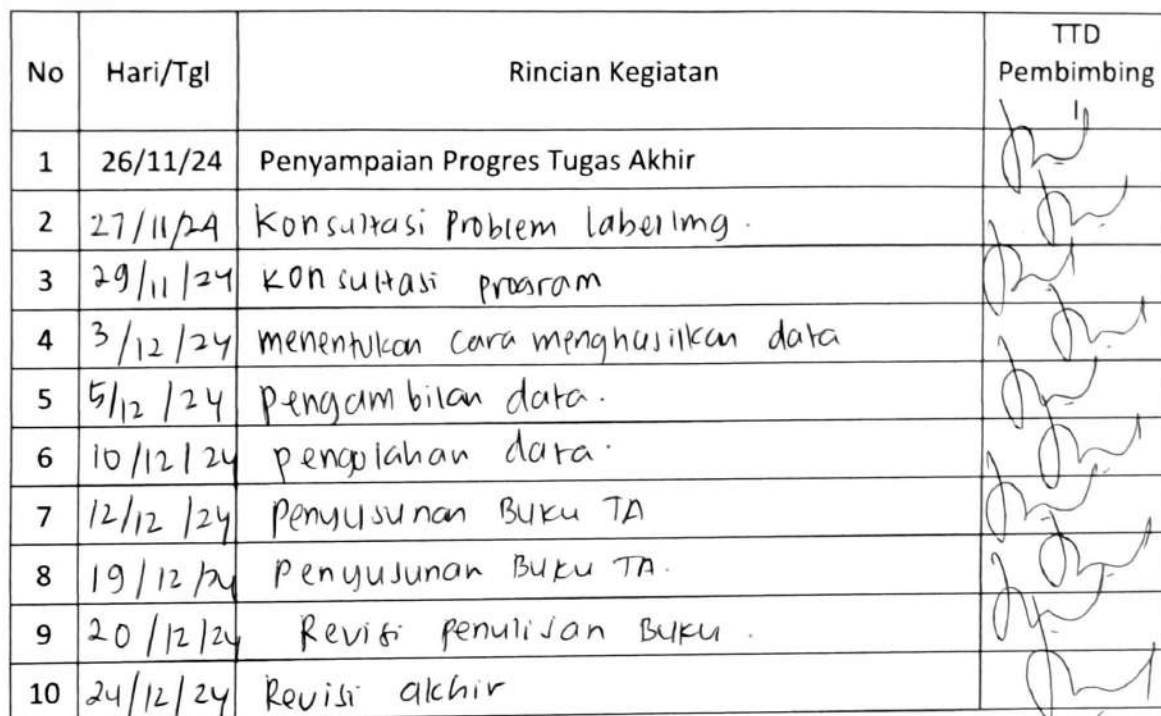 No Hari/Tgl Rincian Kegiatan TTD Pembimbing I
1 26/11/24 Penyampaian Progres Tugas Akhir
2 27/11/24 Konsultasi Problem labelImg.
3 29/11/24 Konsultasi program
4 3/12/24 menentukan cara menghasilkan data
5 5/12/24 pengambilan data.
6 10/12/24 pengolahan data.
7 12/12/24 Penyusunan Buku TA
8 19/12/24 Penyusunan Buku TA.
9 20/12/24 Revisi penulisan Buku.
10 24/12/24 Revisi akhir